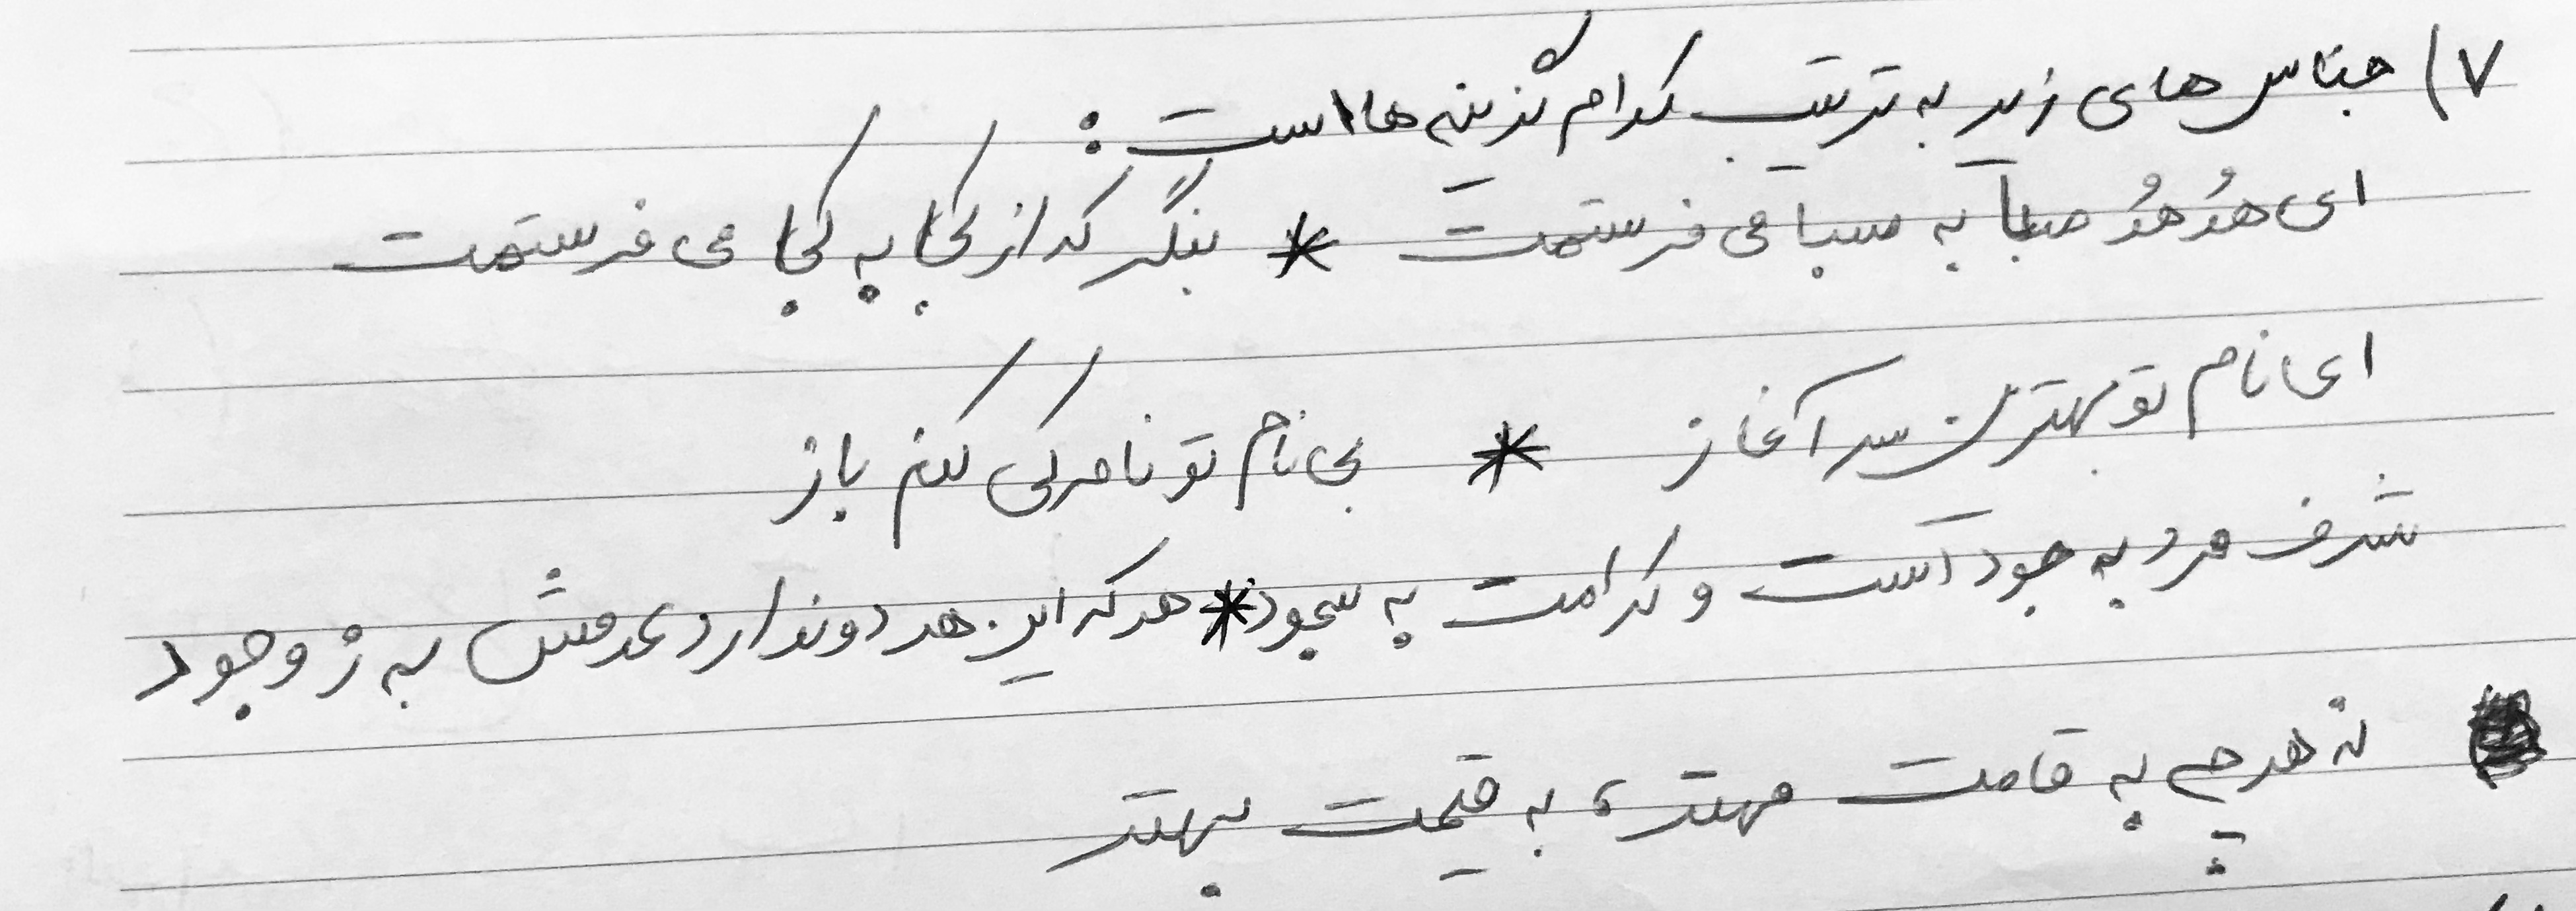 ۷) جناس های زیر به ترتیب کدام گزینه ها است :
ای هُدهُدُ صبا به سبا می فرستمت * بنگر که از کجا به کجا می فرستمت
ای نام تو بهترین سرآغاز * بی نام تو نامه کی کنم باز
شرف مرد به جود است و کرامت به سجود * هر که این هر دو ندارد عدمش به ز وجود
نه هر چه به قامت مهتر ، به قیمت بهتر